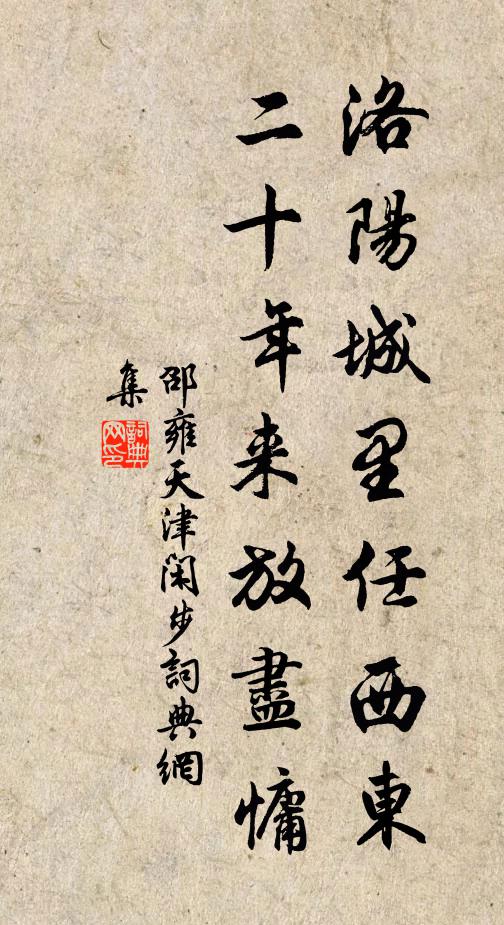 洛陽城里任西東
二十年来放盡慵
邵雍天津闲步詞典網
集
詞典
网印